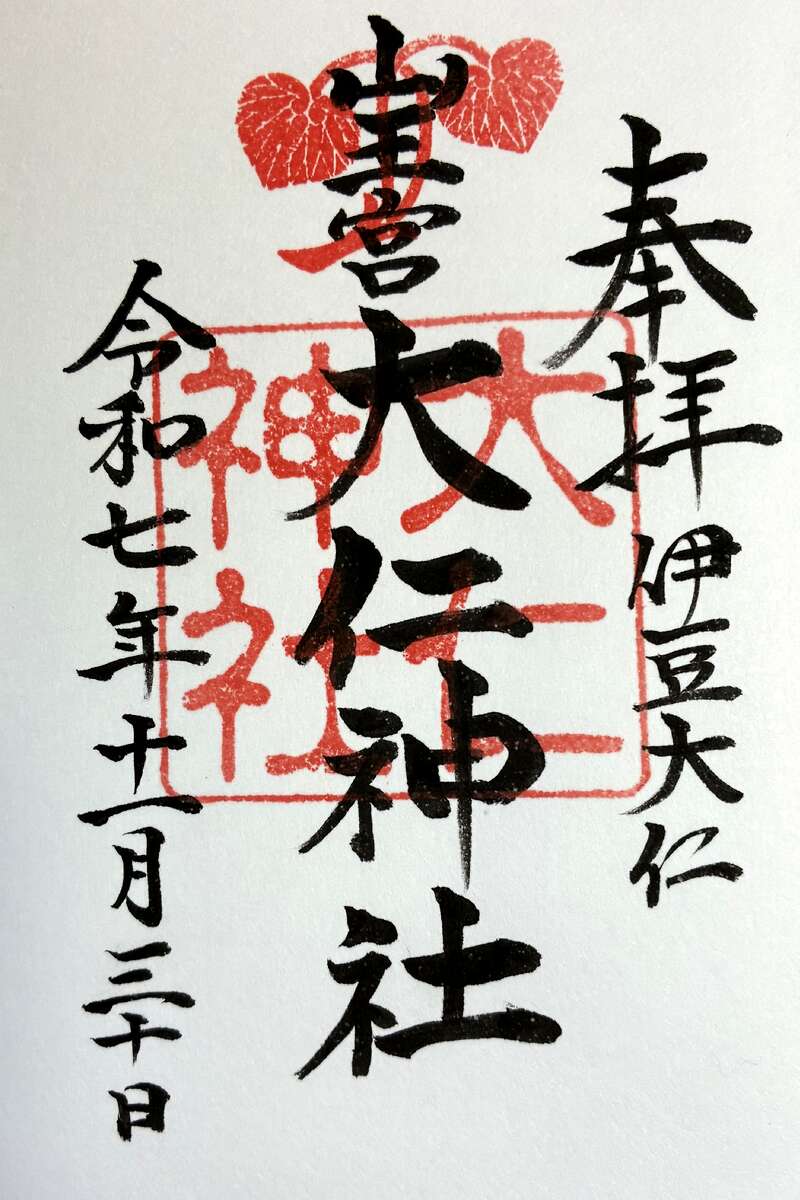 奉拝 伊豆大仁
山王宮 大仁神社
大仁神社
令和七年十一月三十日